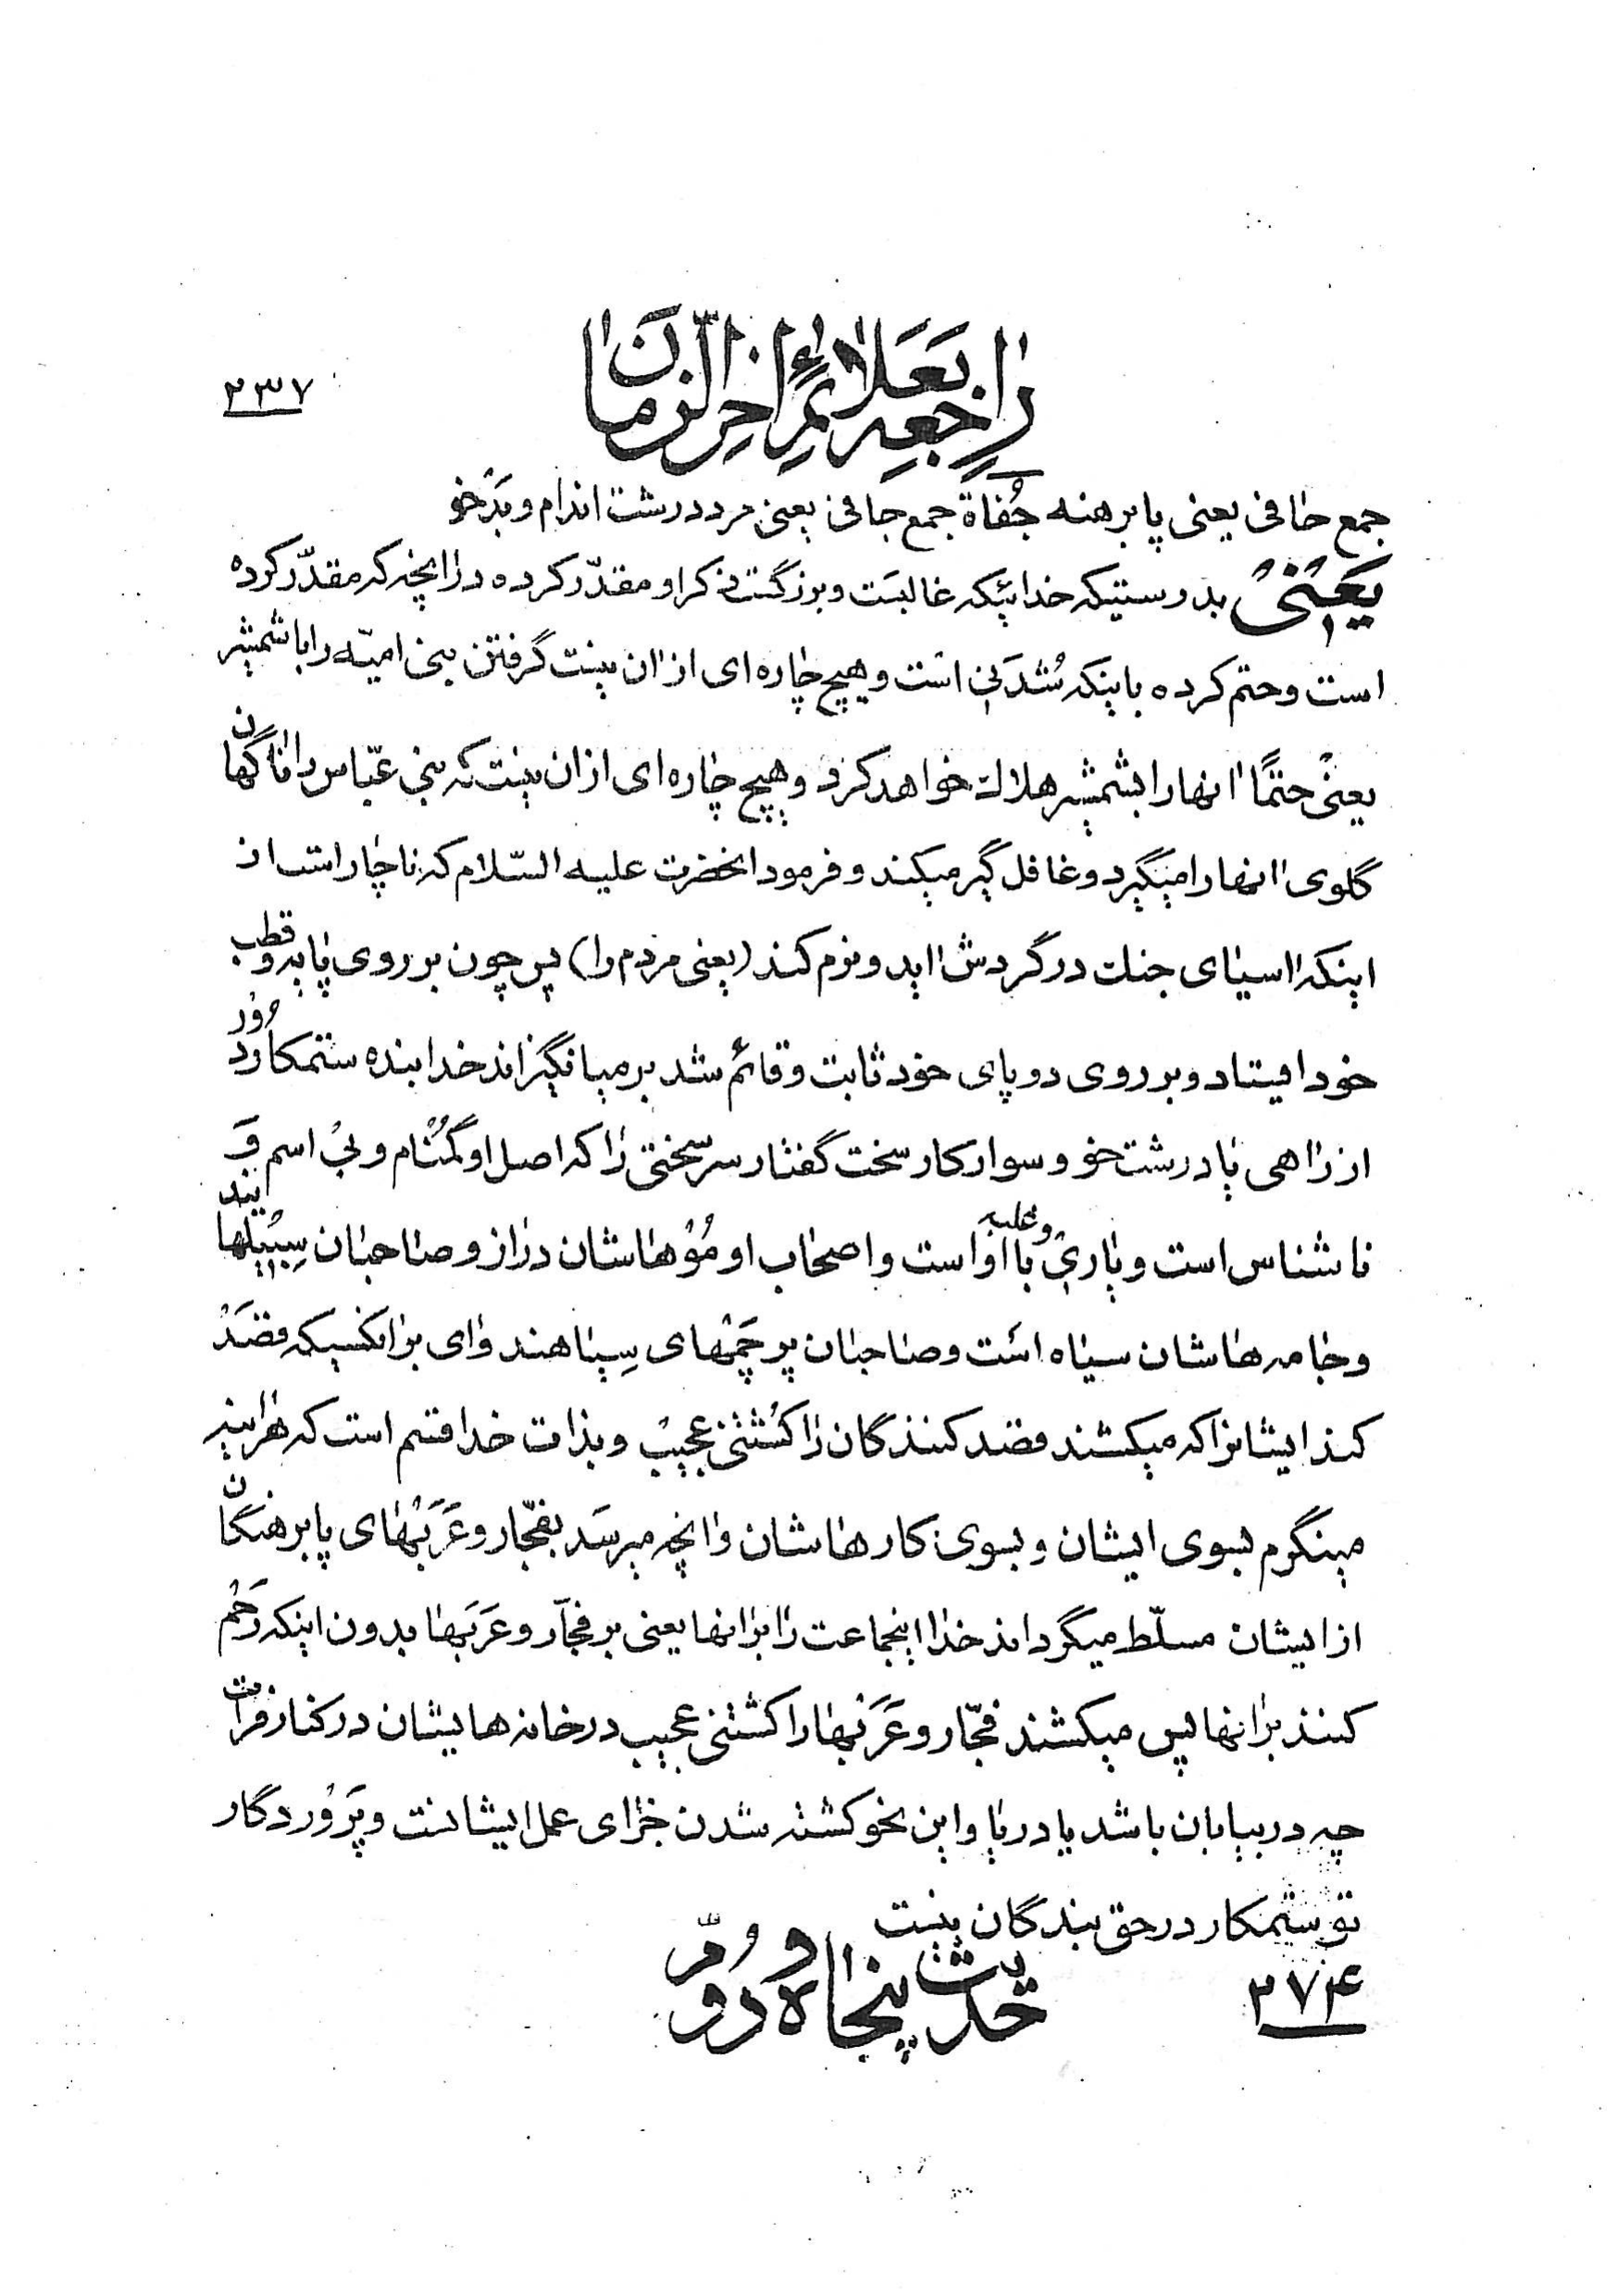 راجعه بعلائم اخر الزمان
۲۳۷
جمع حافی یعنی پا برهنه جُفاة جمع جافی یعنی مرد درشت اندام و بدخو
یَعْنی بدرستیکه خدائیکه غالبست و بزرگست ذکر او مقدّر کرده در انچه که مقدّر کرده
است و حتم کرده باینکه شُدَنی است و هیچ چاره ای از ان نیست گرفتن بنی امیّه را با شمشیر
یعنی حتمًا انها را بشمشیر هلاک خواهد کرد و هیچ چاره ای از ان نیست که بنی عبّاس را ناگهان
گلوی انها را میگیرد و غافل گیر میکند و فرمود انحضرت علیه السّلام که ناچار است از
اینکه اسیای جنک در گردش اید و نرم کند (یعنی مردم را) پس چون بر روی پایه و قطب
خود افیتاد و بر روی دو پای خود ثابت و قائم شد بر میانگیزاند خدا بنده ستمکار زورد
از راهی یا درشت خو و سوار کار سخت گفتار سر سختی را که اصل او گمنام و بی اسم و
ناشناس است و یاری و غلبه با او است و اصحاب او مُوهاشان دراز و صاحبان سِبیلهایند
و جامه هاشان سیاه است و صاحبان پرچَمْهای سِیاهند وای بر انکسیکه قصَدْ
کند ایشانرا که میکشند قصد کنندگان را کشتنی عجیب و بذات خدا قسم است که هراینه
مینگرم بسوی ایشان و بسوی کارهاشان و انچه میرسد بفجّار و عَرَبْهای پا برهنگان
از ایشان مسلّط میگرداند خدا اینجماعت را بر انها یعنی بر فجّار و عَرَبها بدون اینکه رَحْم
کنند بر انها پس میکشند فجّار و عَرَبْها را کشتنی عجیب در خانه هایشان در کنار فرات
چه در بیابان باشد یا دریا و این نحو کشته شدن جزای عمل ایشانست و پَروُردگار
تو ستمکار در حق بندگان نیست
۲۷۴
حَدیث پنجاه و دُوّم